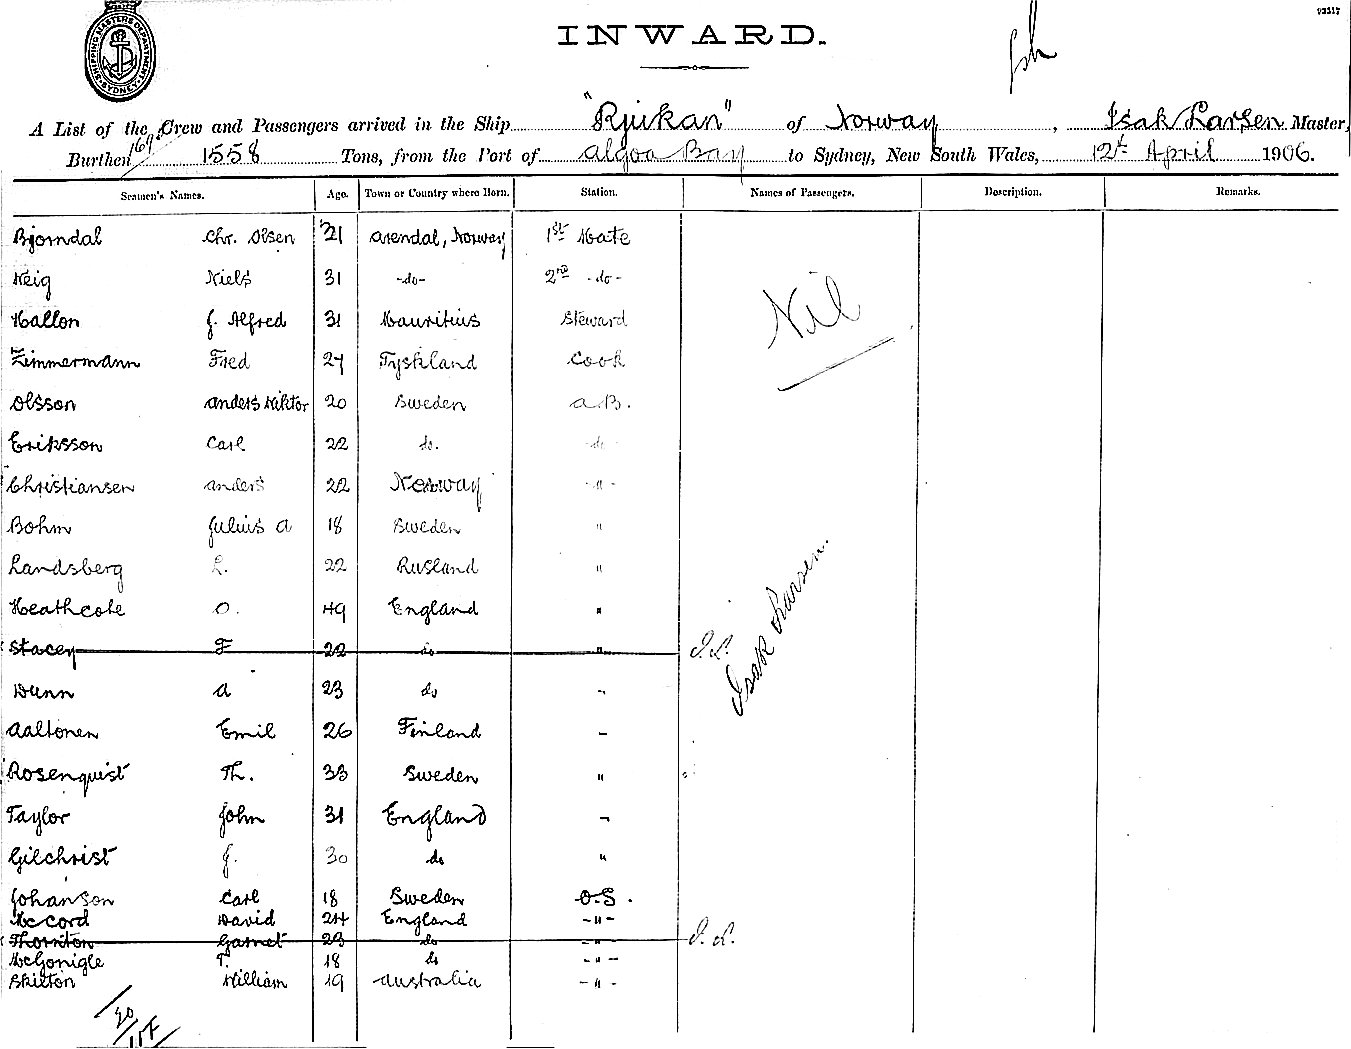 93517
SHIPPING MASTERS DEPARTMENT SYDNEY
INWARD.
A List of the Crew and Passengers arrived in the Ship "Rjukan" of Norway, Isak Larsen Master,
Burthen 1558 Tons, from the Port of Algoa Bay to Sydney, New South Wales, 12th April 1906.
Seamen's Names. Age. Town or Country where Born. Station. Names of Passengers. Description. Remarks.
Bjorndal Chr. Olsen 21 Arendal, Norway 1st Mate
Niels 31 -do- 2nd -do-
Nil
Hallon J. Alfred 31 Mauritius Steward
Zimmermann Fred 27 Tyskland Cook
Olsson Anders Viktor 20 Sweden A.B.
Eriksson Carl 22 do. -do-
Christiansen Anders 22 Norway -"-
Bohm Julius A 18 Sweden "
Landsberg L. 22 Rusland "
Heathcote O. 49 England "
Stacey F 22 do " I.L.
Isak Larsen.
Dunn A 23 do "
Aaltonen Emil 26 Finland "
Rosenquist Th. 33 Sweden "
Taylor John 31 England "
Gilchrist J. 30 do "
Johanson Carl 18 Sweden O.S.
McCord David 24 England -"-
Thornton Garnet 23 do -"- I.L.
McGonigle T. 18 do -"-
Skilton William 19 Australia -"-
20